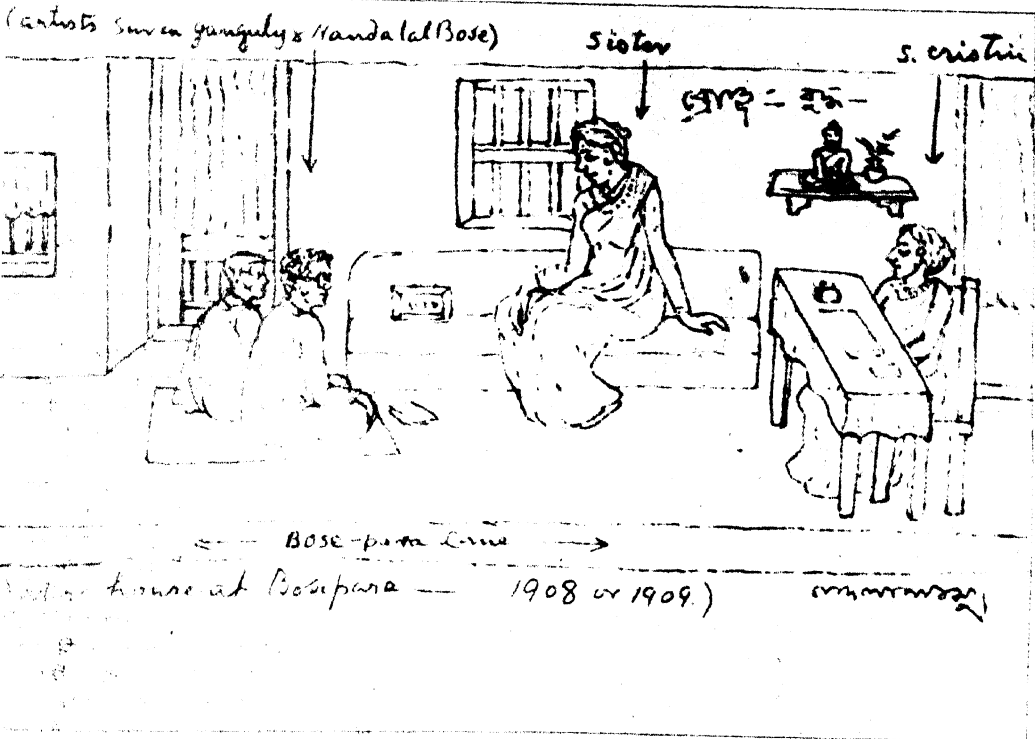 (artists Suren Ganguly & Nandalal Bose)
Sister
S. cristin
Bose-para Lane
house at Bosepara — 1908 or 1909.)